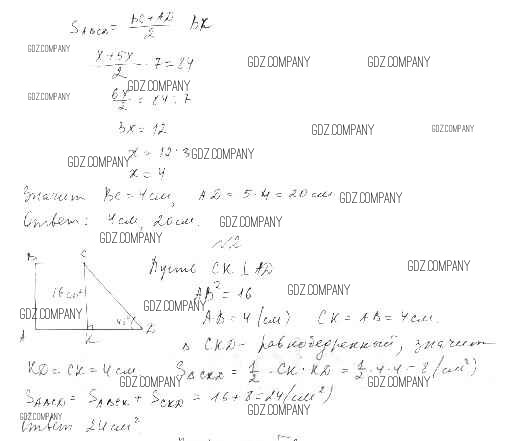 S_ABCD = (BC + AD)/2 · BK
GDZ.COMPANY
(x + 5x)/2 · 7 = 84
GDZ.COMPANY GDZ.COMPANY
GDZ.COMPANY
GDZ.COMPANY
6x/2 = 84 : 7
3x = 12
GDZ.COMPANY GDZ.COMPANY
x = 12 : 3
GDZ.COMPANY GDZ.COMPANY
x = 4
Значит BC = 4 см, AD = 5·4 = 20 см
GDZ.COMPANY
Ответ: 4 см, 20 см.
GDZ.COMPANY
GDZ.COMPANY
№2
B C
Пусть CK ⊥ AD
GDZ.COMPANY
16 см²
AB² = 16
GDZ.COMPANY
GDZ.COMPANY GDZ.COMPANY
AB = 4 (см) CK = AB = 4 см.
45°
A K D
Δ CKD - равнобедренный, значит
KD = CK = 4 см S_ΔCKD = 1/2 · CK · KD = 1/2 · 4 · 4 = 8 (см²)
GDZ.COMPANY GDZ.COMPANY
S_ABCD = S_ABCK + S_CKD = 16 + 8 = 24 (см²)
GDZ.COMPANY GDZ.COMPANY
Ответ 24 см²